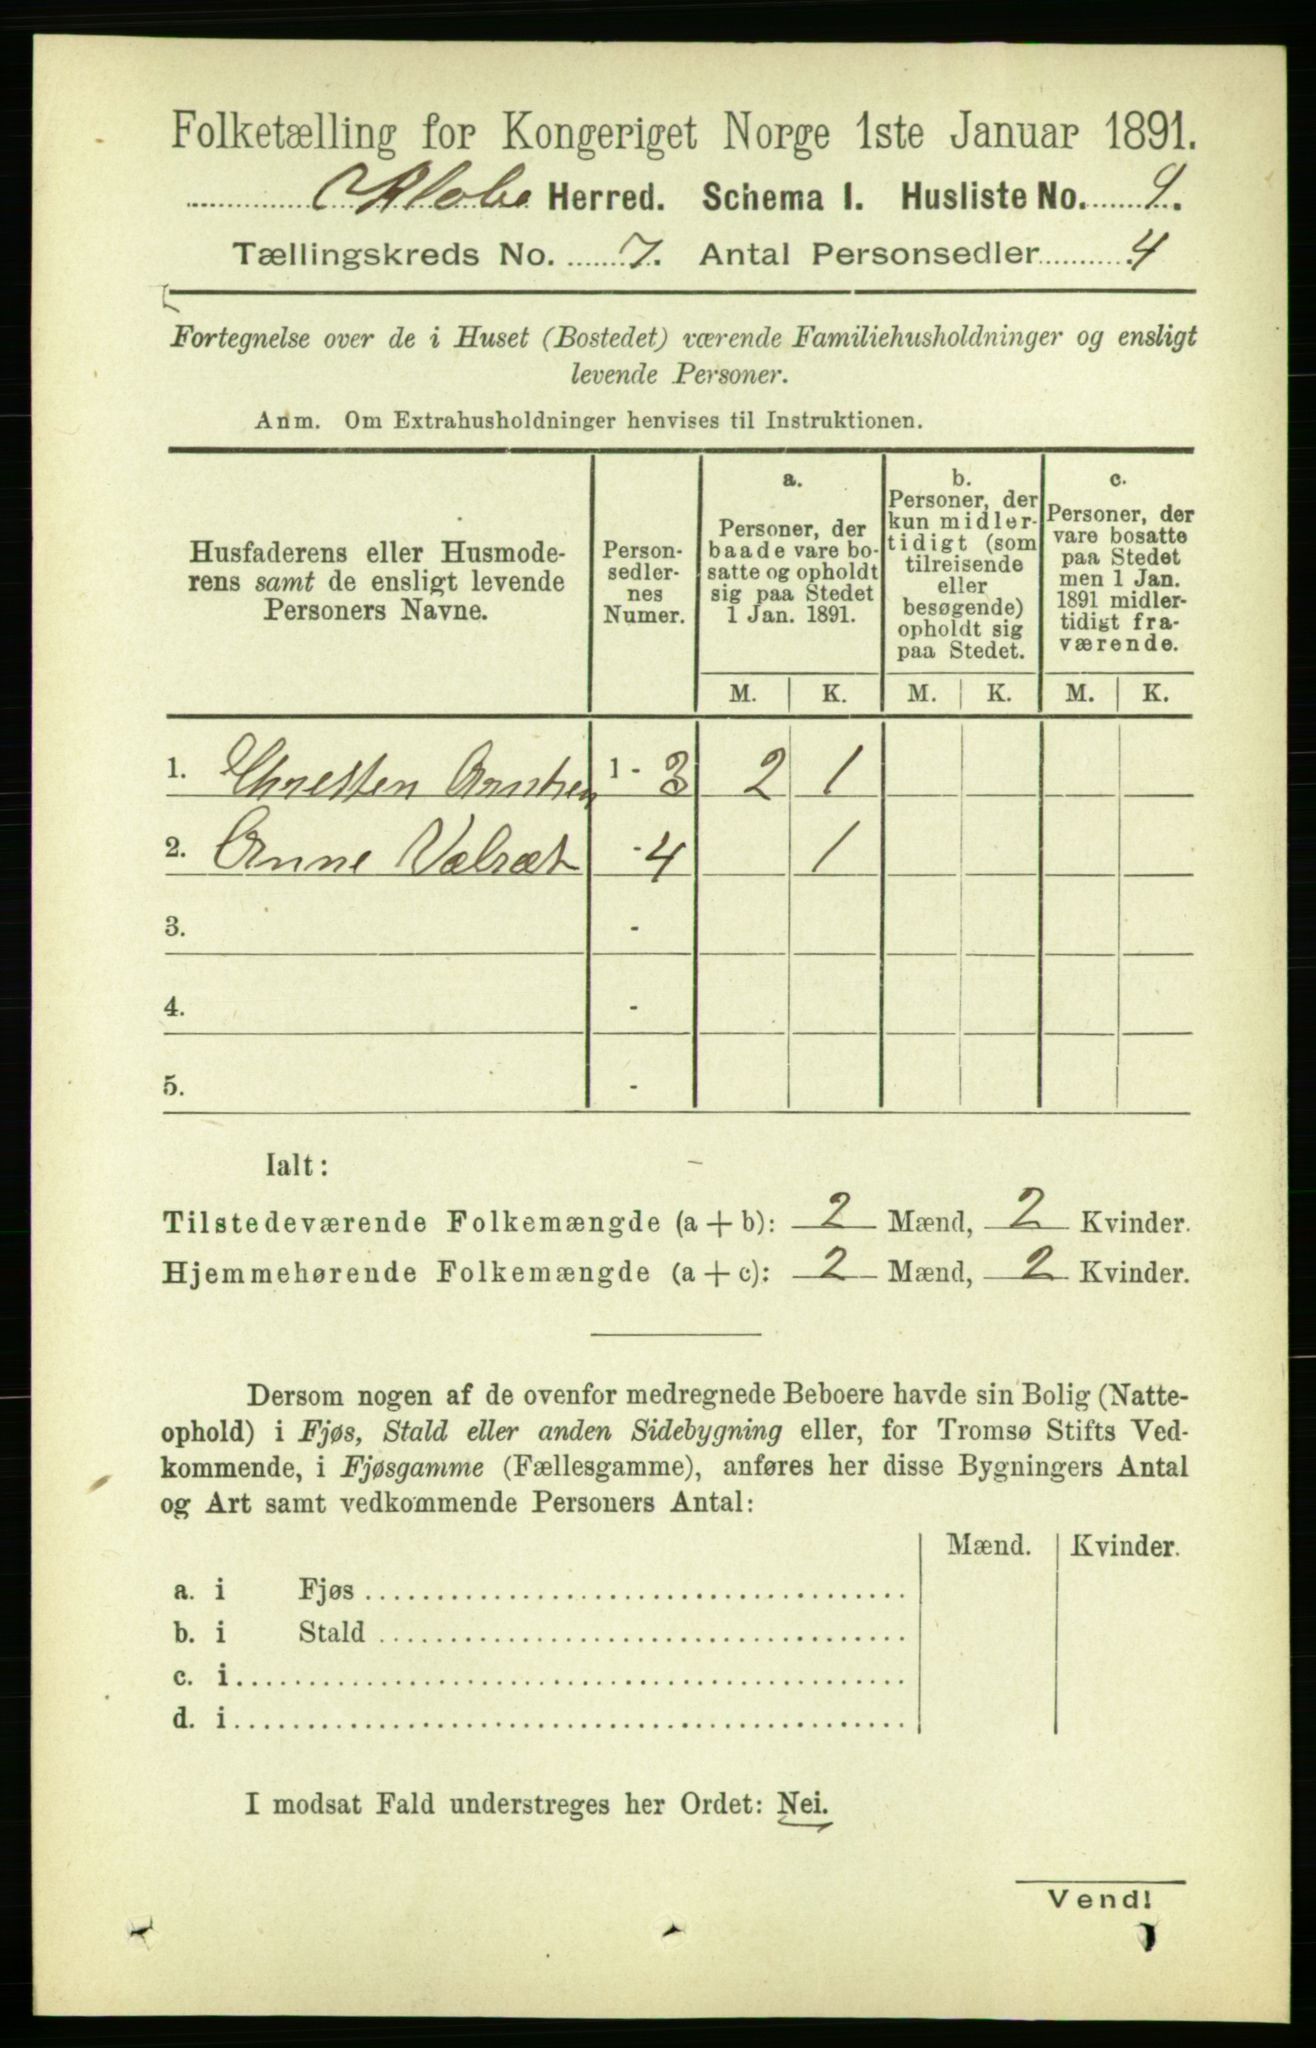 Folketælling for Kongeriget Norge 1ste Januar 1891.
Herred. Schema I. Husliste No. 9.
Tællingskreds No. 7. Antal Personsedler 4
Fortegnelse over de i Huset (Bostedet) værende Familiehusholdninger og ensligt
levende Personer.
Anm. Om Extrahusholdninger henvises til Instruktionen.
Husfaderens eller Husmode-
rens samt de ensligt levende
Personers Navne.
Person-
sedler-
nes
Numer.
a.
Personer, der
baade vare bo-
satte og opholdt
sig paa Stedet
1 Jan. 1891.
b.
Personer, der
kun midler-
tidigt (som
tilreisende
eller
besøgende)
opholdt sig
paa Stedet.
c.
Personer, der
vare bosatte
paa Stedet
men 1 Jan.
1891 midler-
tidigt fra-
værende.
M. K. M. K. M. K.
1. Chresten 1 - 3 2 1
2. Anne - 4 1
3. -
4. -
5. -
Ialt:
Tilstedeværende Folkemængde (a + b): 2 Mænd, 2 Kvinder.
Hjemmehørende Folkemængde (a + c): 2 Mænd, 2 Kvinder.
Dersom nogen af de ovenfor medregnede Beboere havde sin Bolig (Natte-
ophold) i Fjøs, Stald eller anden Sidebygning eller, for Tromsø Stifts Ved-
kommende, i Fjøsgamme (Fællesgamme), anføres her disse Bygningers Antal
og Art samt vedkommende Personers Antal:
Mænd. Kvinder.
a. i Fjøs
b. i Stald
c. i
d. i
I modsat Fald understreges her Ordet: Nei.
Vend!